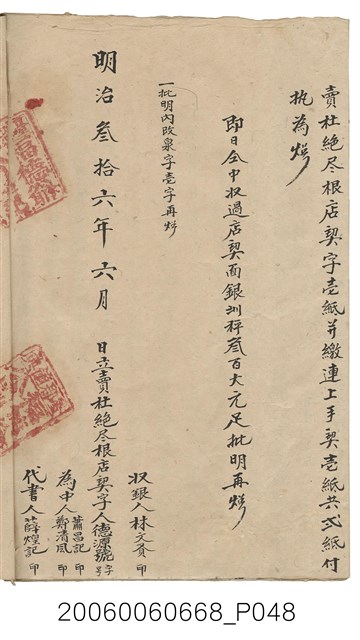 賣杜絕尽根店契字壹紙并繳連上手契壹紙共弍紙付
执為炤
即日仝中收過店契面銀㓥秤叁百大元足批明再炤
一批明內改泉字壹字再炤
明治叁拾六年六月　日立賣杜絕尽根店契字人德源號
收銀人林文貢印
為中人
蕭昌記印
鄭清風印
代書人薛煌記印
20060060668_P048